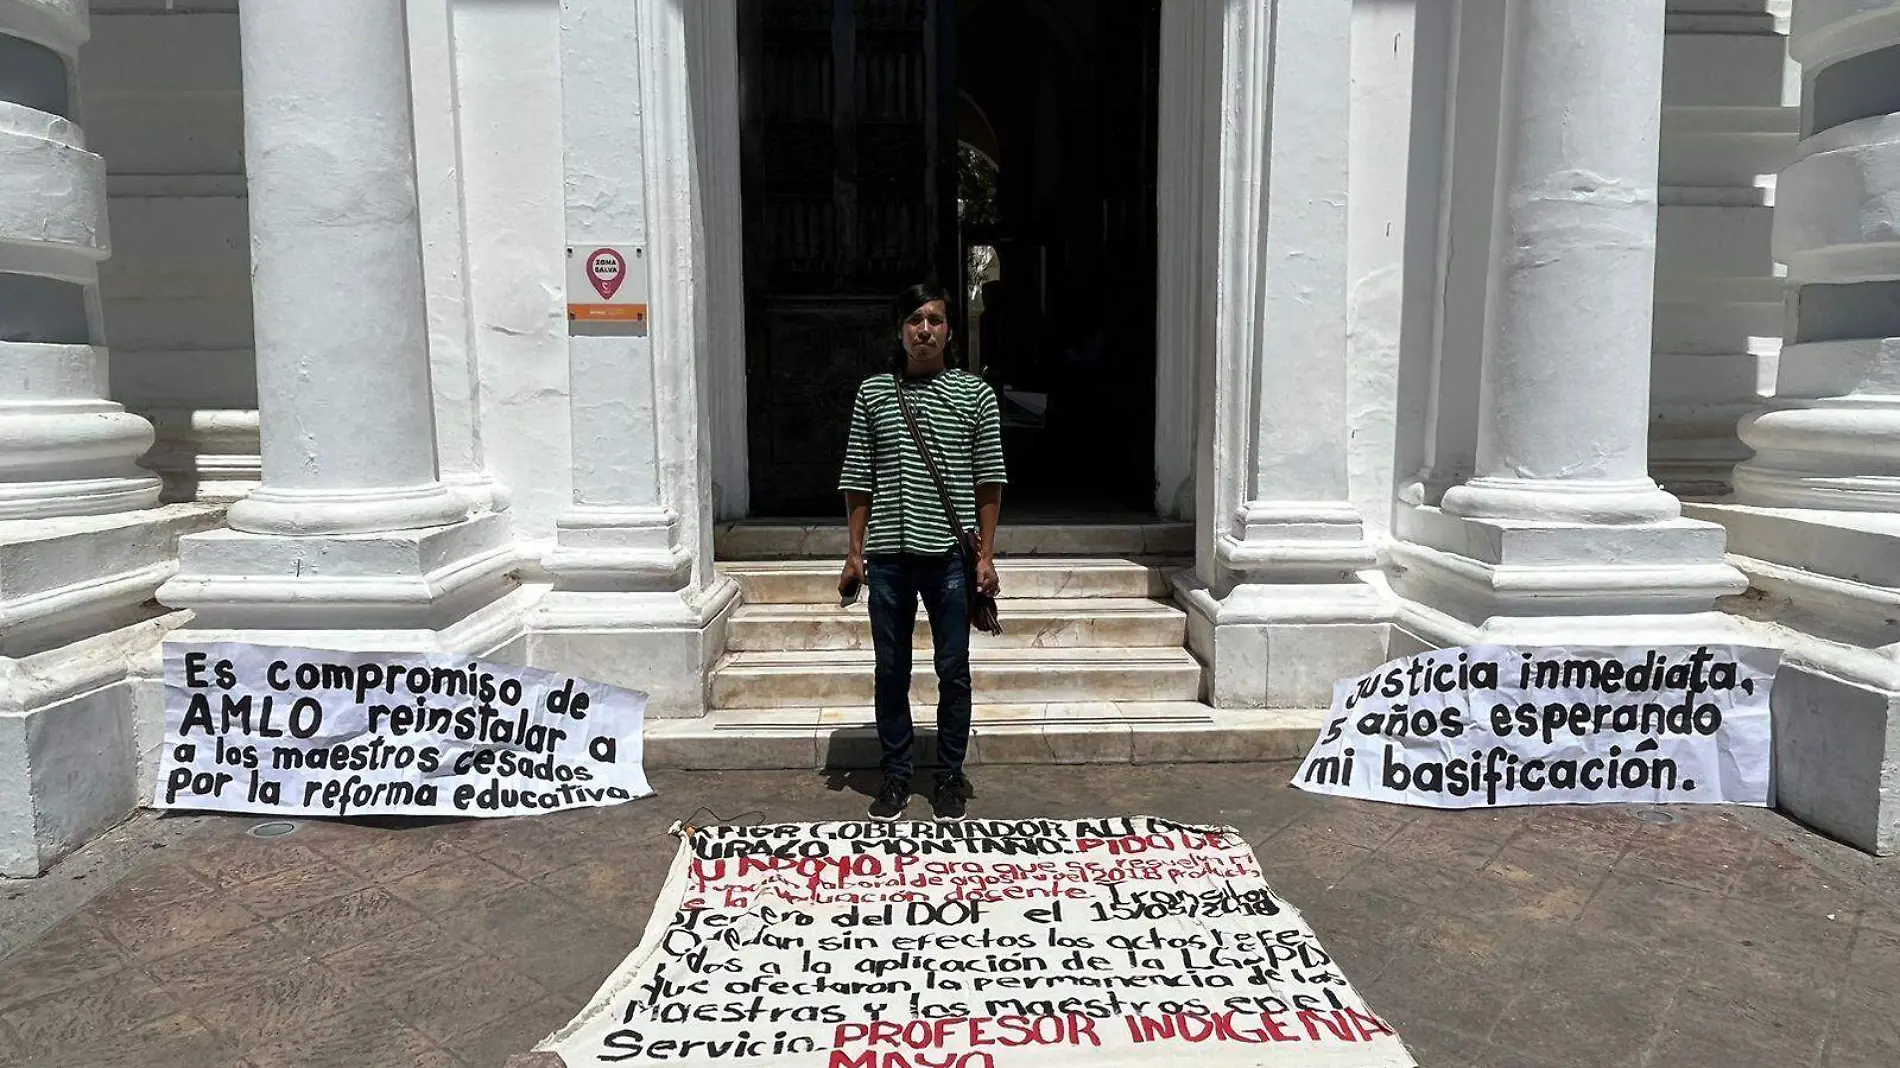 ZONA
SALVA
Es compromiso de
AMLO reinstalar a
a los maestros cesados
por la reforma educativa.
Justicia inmediata,
5 años esperando
mi basificación.
GOBERNADOR
MONTAÑO. PIDO DE
APOYO. Para que se resuelva
laboral de agosto del 2018
la evaluación docente. Transitor
Tercero del DOF el 15/05/
Quedan sin efectos los actos refe-
ridos a la aplicación de la LGSPD
que afectaron la permanencia de las
Maestras y los maestros en el
Servicio. PROFESOR INDIGENA
MAYO